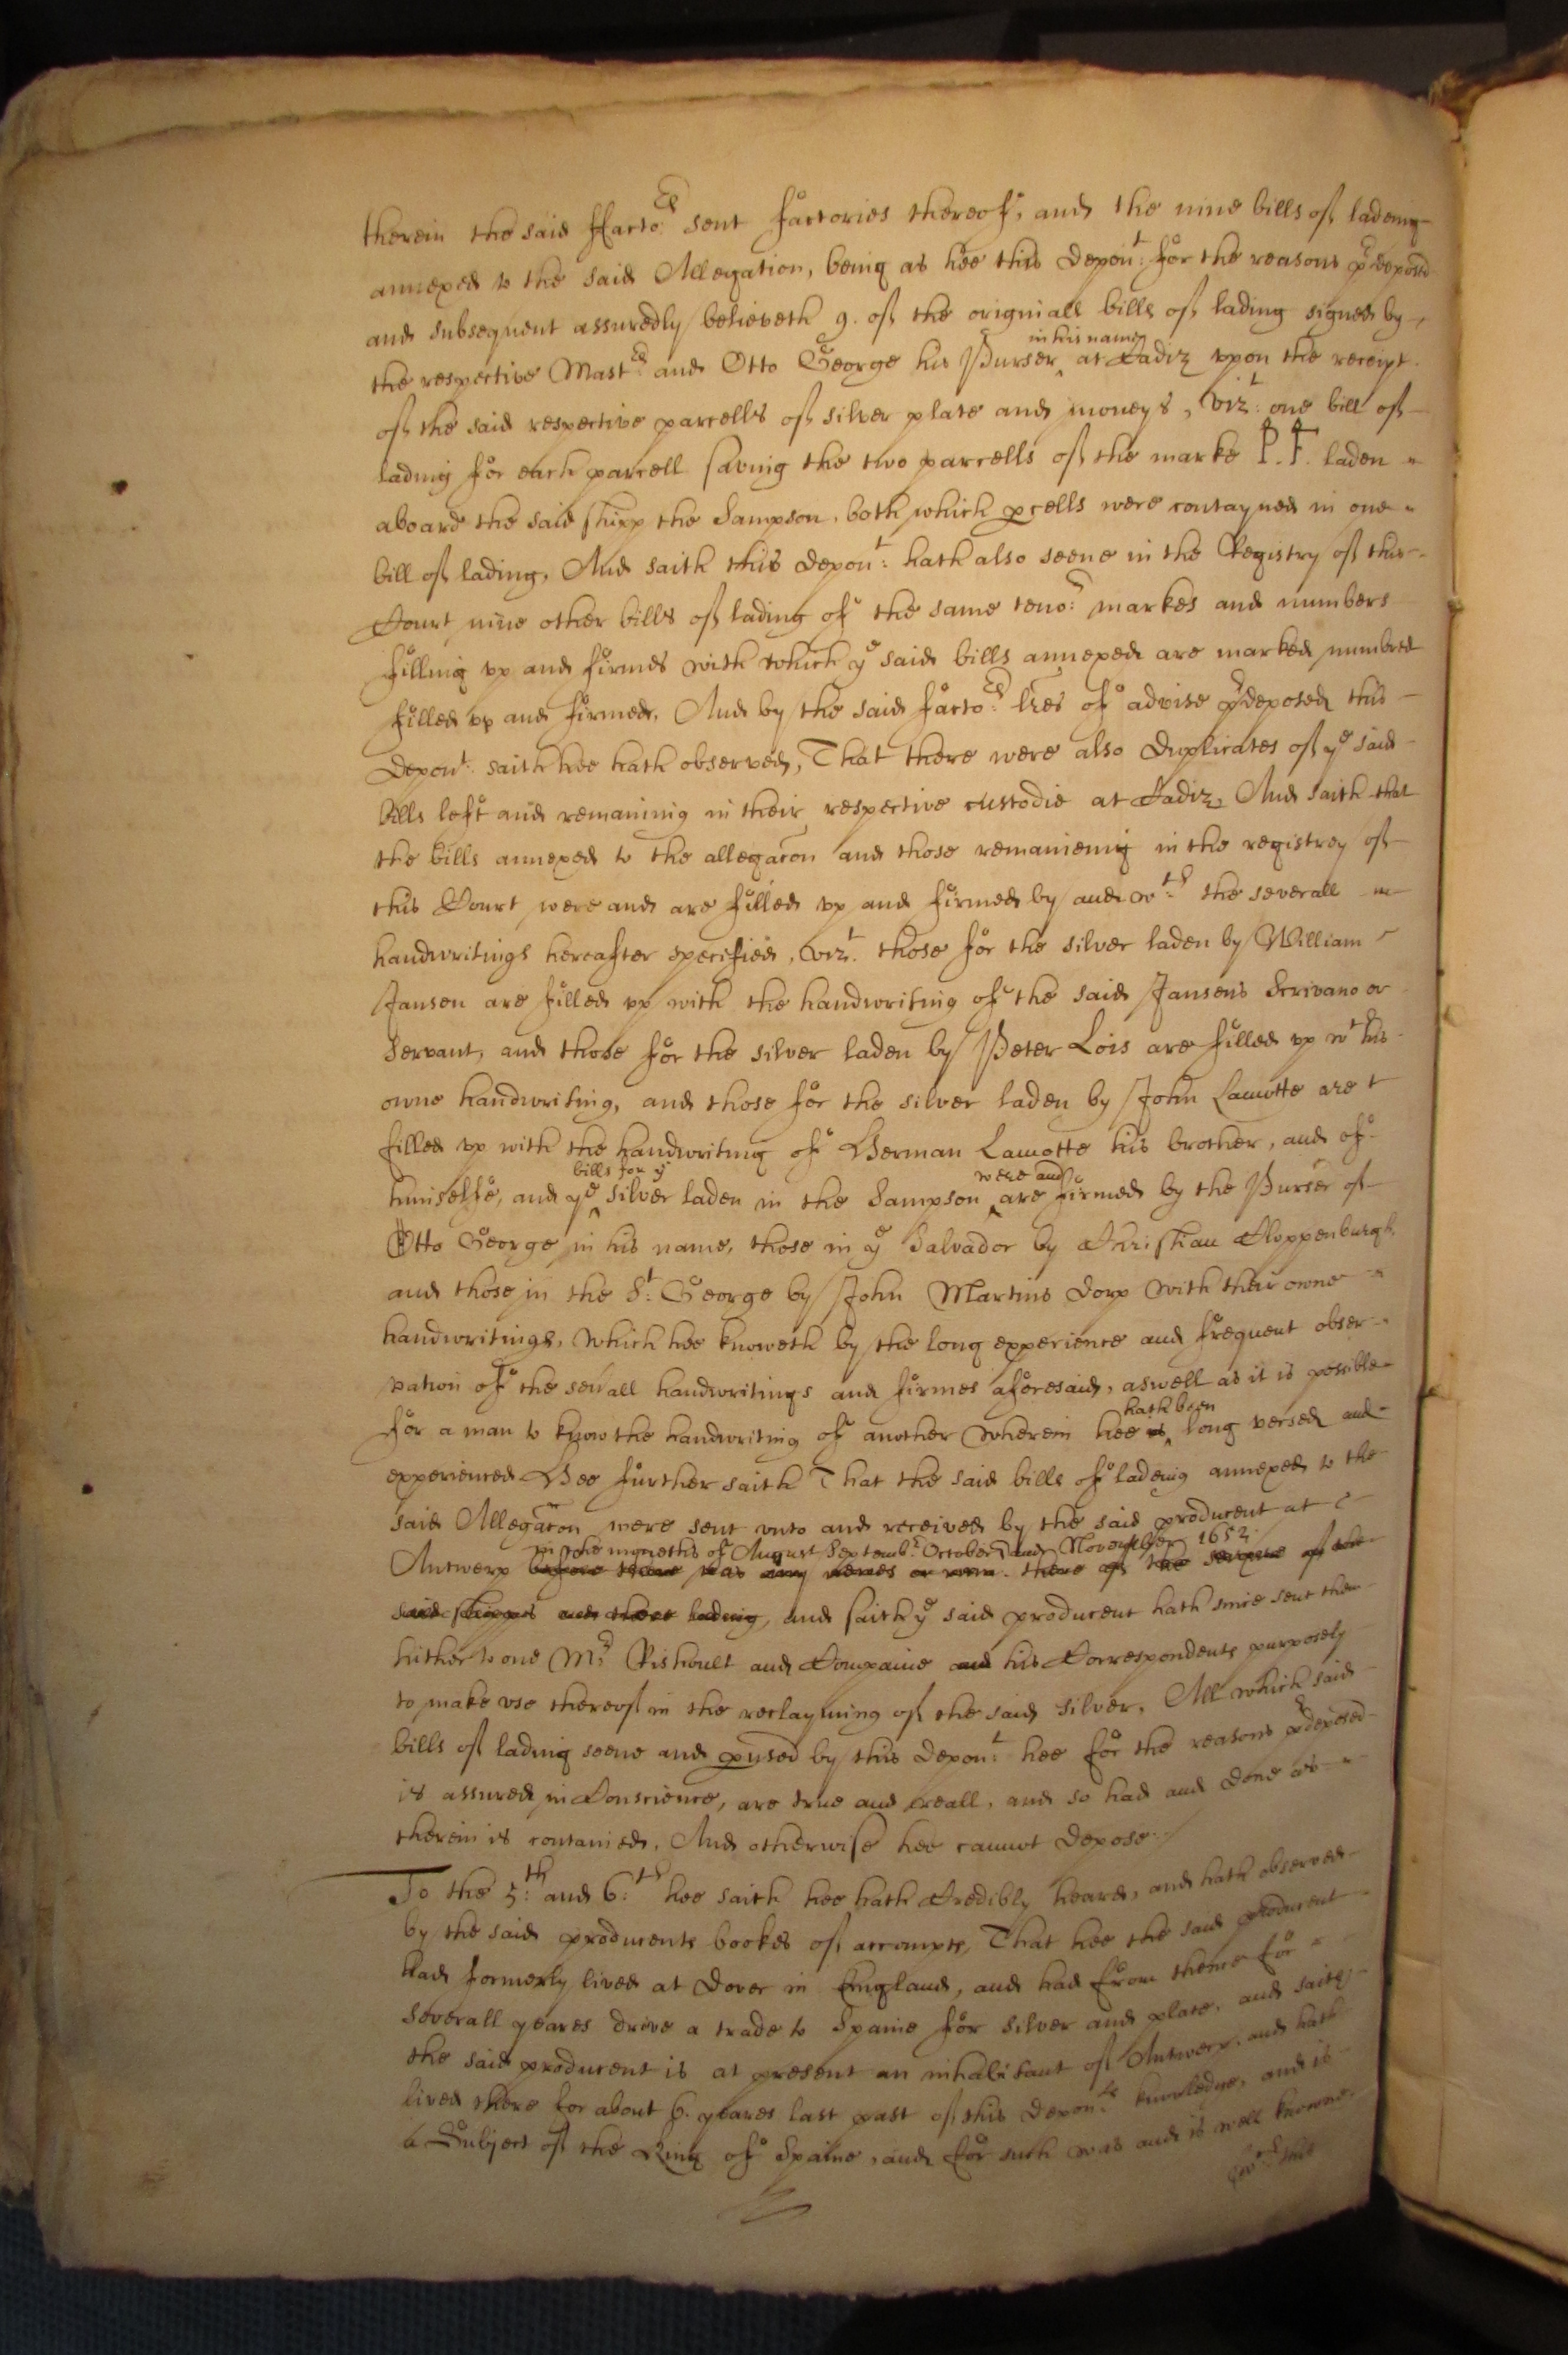 therein the said ffacto:rs sent factories thereof, and the nine bills of ladeing
annexed to the said Allegation, being as hee this depont: for the reasons predeposed
and subsequent assuredly believeth 9. of the originall bills of lading signed by
the respective Mast:rs and Otto George his Purser ^ in his name at Cadiz vpon the receipt
of the said respective parcells of silver plate and moneys, vizt: one bill of
lading for each parcell saving the two parcells of the marke P. F. laden
aboard the said shipp the Sampson, both which pcells were contayned in one
bill of lading, And saith this depont: hath also seene in the Registry of this
Court nine other bills of lading of the same teno:r markes and numbers
filling vp and firmes with which ye said bills annexed are marked numbred
filled vp and firmed, And by the said facto:rs lres of advise predeposed this
depont: saith hee hath observed, That there were also duplicates of ye said
bills left and remaining in their respective custodie at Cadiz, And saith that
the bills annexed to the allegacon and those remaineing in the registrey of
this Court were and are filled vp and firmed by and w:th the severall
handwritings hereafter specified, vizt. those for the silver laden by William
Jansen are filled vp with the handwriting of the said Jansens Scrivano or
Servant, and those for the silver laden by Peter Lois are filled vp wth his
owne handwriting, and those for the silver laden by John Lamotte are
filled vp with the handwriting of Herman Lamotte his brother, and of
himselfe, and ye ^ bills for ye silver laden in the Sampson ^ were and are firmed by the Purser of
Otto George in his name, those in ye Salvador by Christian Cloppenburgh,
and those in the St: George by John Martins dorp with their owne
handwritings, which hee knoweth by the long experience and frequent obser-
vation of the sevall handwritings and firmes aforesaid, aswell as it is possible
for a man to know the handwriting of another wherein hee is ^ hath been long versed and
experienced Hee further saith That the said bills of ladeing annexed to the
said Allegacon were sent vnto and received by the said producent at
in the moneths of August Septemb:r October and November 1652.
Antwerp before there was any newes or were there of the seizure of the
said shipps and their lading, and saith ye said producent hath since sent them
hither to one Mr: Rishoult and Companie and his Correspondents purposely
to make vse thereof in the reclayming of the said silver, All which said
bills of lading seene and pused by this depont: hee for the reasons predeposed
is assured in Conscience, are true and reall, and so had and done as
therein is contained, And otherwise hee cannot depose
To the 5:th and 6:th hee saith hee hath Credibly heard, and hath observed
by the said producents bookes of accompts, That hee the said producent
had formerly lived at Dover in England, and had from thence for
severall yeares drive a trade to Spaine for silver and plate, and saith
the said producent is at present an inhabitant of Antwerp, and hath
lived there for about 6. yeares last past of this depon:ts knowledge, and is
a Subject of the King of Spaine, and for such was and is well knowne,